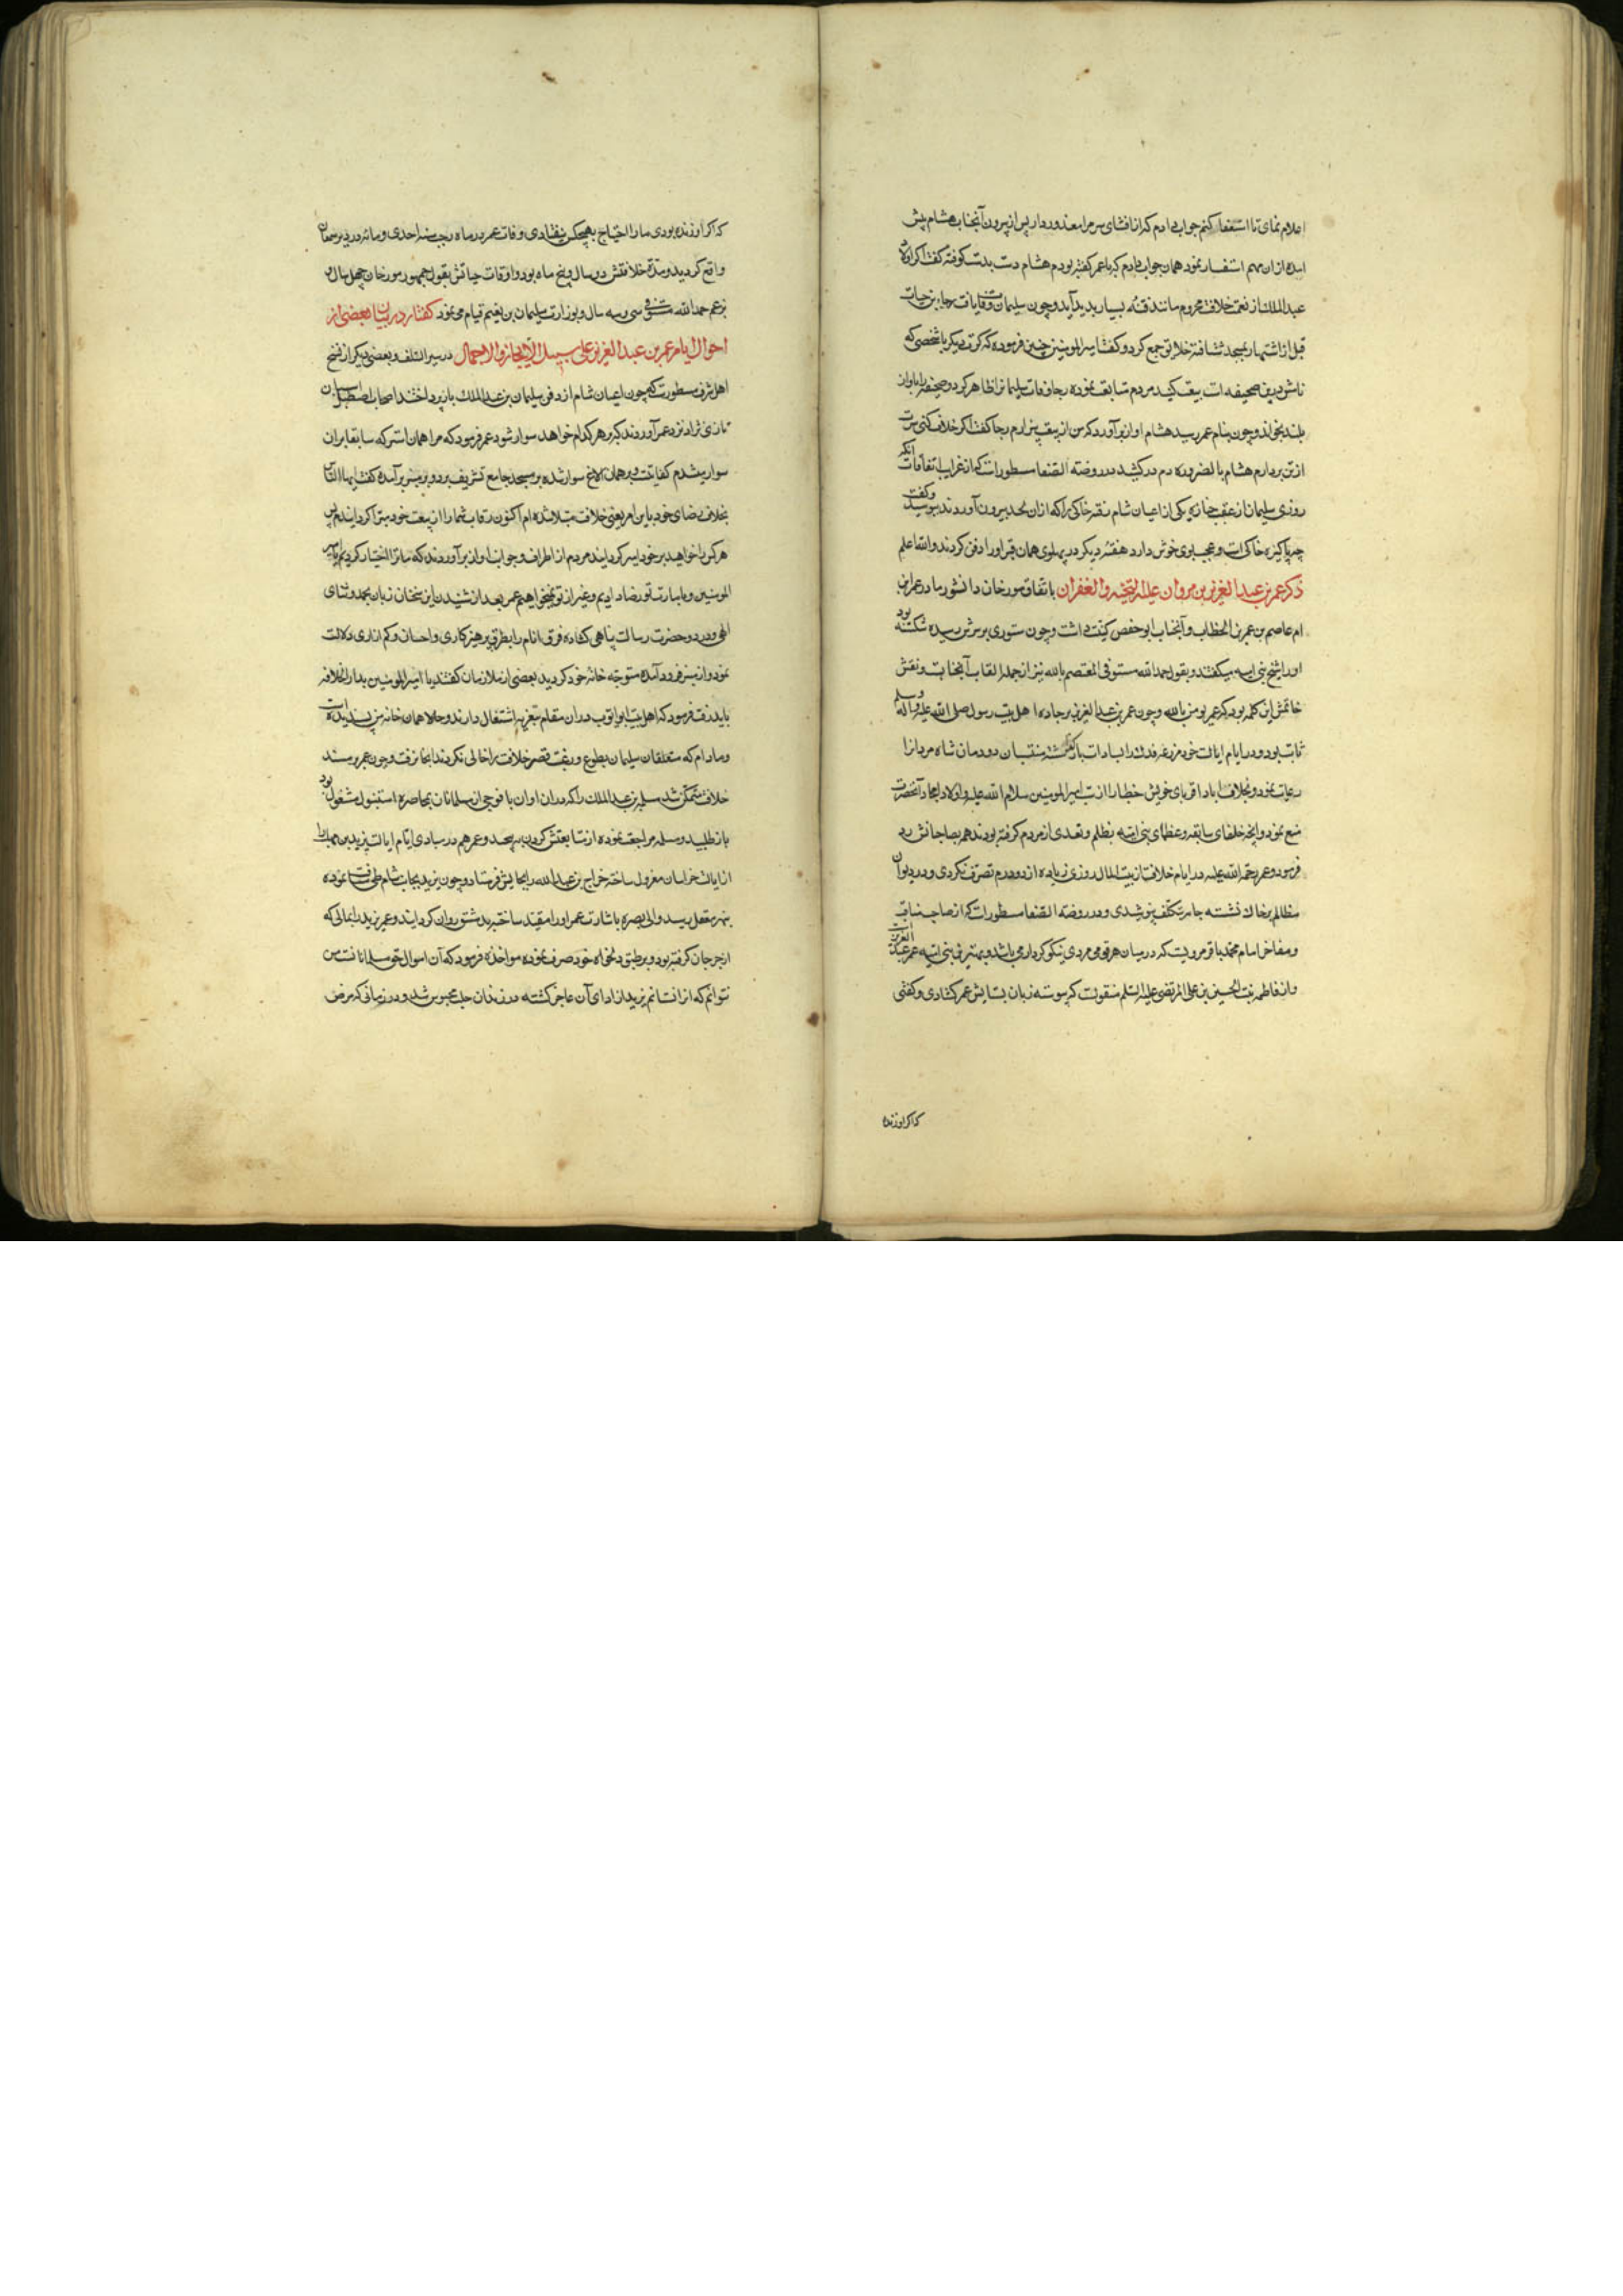 اعلام نمای تا استغفار کنم جواب دادم که از افشای سر مرا معذور دار پس از بیرون آنجناب هشام پیش
آمده از ان مهم استفسار نمود همان جواب دادم که با عمر گفته بودم هشام دست بدست کوفته گفت اگر اولاد
عبد الملک از نعمت خلافت محروم مانند فتنه بسیار پدید آید و چون سلیمان وفات یافت رجا بن حیات
قبل از اشتهار بمسجد شتافته خلایق جمع کرد و گفت امیر المومنین چنین فرموده که کرت دیگر با شخصی که
نامش درین صحیفه است بیعت کنید مردم متابعت نموده رجا وفات سلیمانرا ظاهر کرد و صحیفه را باواز
بلند بخواند و چون بنام عمر رسید هشام اواز برآورد که من ازین بیعت بیزارم رجا گفت اگر خلاف کنی سرت
از تن بردارم هشام بالضروره دم در کشید در روضة الصفا مسطورست که از غرایب اتفاقات انکه
روزی سلیمان از عقب جنازه یکی از اعیان شام نقره خاکی را که ازان لحد بیرون آوردند ببوسید و گفت
چه پاکیزه خاکی است و عجب بوی خوش دارد هفته دیگر در پهلوی همان قبر اورا دفن کردند والله اعلم
ذکر عمر بن عبد العزیز بن مروان علیه الرحمة والغفران باتفاق مورخان دانشور مادر عمر بن
ام عاصم بن عمر بن الخطاب و آنجناب ابو حفص کنیت داشت و چون ستوری بر سرش رسیده شکسته بود
اورا اشج بنی امیه میگفتند و بقول حمد الله مستوفی المعتصم بالله نیز از جمله القاب آنجناب است و نقش
خاتمش این کلمه بود که عمر یومن بالله و چون عمر بن عبد العزیز بر جاده اهل بیت رسول صلی الله علیه و آله وسلم
ثابت بود و در ایام ایالت خود مزرعه فدک را بسادات بازگذاشته منتسبان دودمان شاه مردانرا
رعایت نمود و بخلاف اباد اقربای خویش خطبا را از سب امیر المومنین سلام الله علیه و اولاد امجاد آنحضرت
منع نمود و آنچه خلفای سابقه و عظمای بنی امیه بظلم و تعدی از مردم گرفته بودند همه بصاحبانش رد
فرمود و عمر رحمة الله علیه در ایام خلافت از بیت المال روزی زیاده از دو درم تصرف نکردی و در دیوان
مظالم بر خاک نشسته جامه تکلف نپوشیدی و در روضة الصفا مسطورست که از صاحب مناقب
و مفاخر امام محمد باقر مرویست که در میان هر قومی مردی نیکو کردار می باشد و بهترین بنی امیه عمر بن عبد العزیز است
و از فاطمه بنت الحسین بن علی المرتضی علیه السلم منقولست که پیوسته زبان بستایش عمر گشادی و گفتی
که اگر او زنده
که اگر او زنده بودی مارا احتیاج بهیچکس نیفتادی وفات عمر در ماه رجب سنه احدی و مائه در دیر سمعان
واقع گردید و مدت خلافتش دو سال و پنج ماه بود و اوقات حیاتش بقول جمهور مورخان چهل سال و
بزعم حمد الله مستوفی سی و سه سال و بوزارت سلیمان بن نعیم قیام می نمود گفتار در بیان بعضی از
احوال ایام عمر بن عبد العزیز علی سبیل الایجاز والاجمال در سیر السلف و بعضی دیگر از نسخ
اهل شرف مسطورست که چون اعیان شام از دفن سلیمان بن عبد الملک باز پرداختند اصحاب اصطبل اسبان
تازی نژاد نزد عمر آوردند که بر هر کدام خواهد سوار شود عمر فرمود که مرا همان استر که سابقا بران
سوار میشدم کفایتست و بر همان الاغ سوار شده بمسجد جامع تشریف برد و بر منبر برآمده گفت ایها الناس
بخلاف رضای خود باین امر یعنی خلافت مبتلا شده ام اکنون رقاب شما را از بیعت خود مبرا گردانیدم پس
هر کس را خواهید بر خود امیر گردانید مردم از اطراف و جوانب اواز برآوردند که ما ترا اختیار کردیم یا امیر
المومنین و بامارت تو رضا دادیم و غیر از تو نمیخواهیم عمر بعد از شنیدن این سخنان زبان بحمد و ثنای
الهی و درود حضرت رسالت پناهی گشاده فرق انام را بطریق پرهیزکاری و احسان و کم ازاری دلالت
نمود و از منبر فرود آمده متوجه خانه خود گردید بعضی از ملازمان گفتند یا امیر المومنین بدار الخلافه
باید رفت فرمود که اهل بیت ابو ایوب دران مقام بتعزیه اشتغال دارند و حالا همان خانه من پسندیده است
و مادام که متعلقان سلیمان بطوع و رغبت قصر خلافت را خالی نکردند آنجا نرفت و چون عمر بر مسند
خلافت متمکن شد مسلمة بن عبد الملک را که دران اوان با فوجی از مسلمانان بمحاصره استنبول مشغول بود
باز طلبید و مسلمه مراجعت نموده از متابعتش گردن نه پیچید و عمر هم در مبادی ایام ایالت یزید بن مهلب را
از ایالت خراسان معزول ساخته جراح بن عبد الله را بجایش فرستاد و چون یزید بجانب شام طی مسافت نموده
بنهر معقل رسید والی بصره باشارت عمر اورا مقید ساخته بدمشق روان گردانید و عمر یزید را بمالی که
از جرجان گرفته بود و بر طبق دلخواه خود صرف نموده مواخذه فرمود که آن اموال حق مسلمانانست من
نتوانم که ازان ستانم یزید از ادای آن عاجز گشته در زندان حلب محبوس شد و در زمانی که مرض